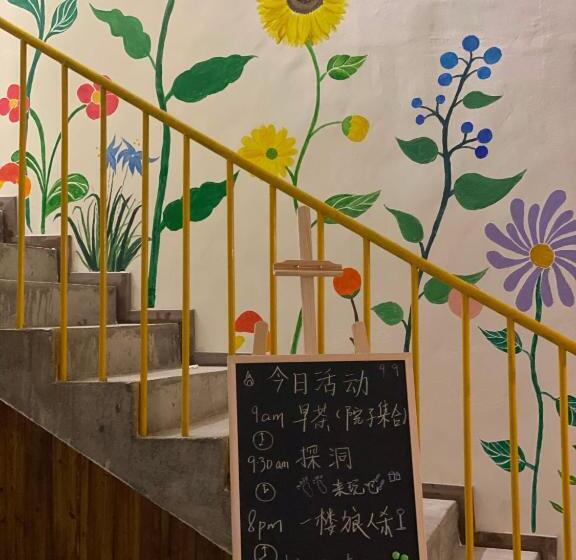 今日活动 99
9am 早茶(院子集合)
9:30am 探洞
来玩吧
8pm 一楼狼人杀